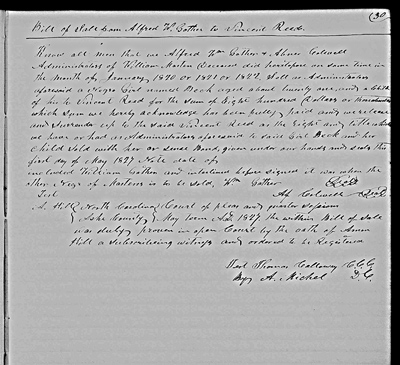 (30
Bill of Sale from Alfred W. Cother to Vincent Reed.
Know all men that we Alfred Wm Cother & Abner Colwell
Administrators of William Masten Deceased did heretofore on some time in
the month of January 1820 or 1821 or 1822. Sell as Administrators
aforesaid a Negro Girl named Beck aged about twenty one and a child
of her to Vincent Reed for the Sum of Eight hundred Dollars or
which Sum we hereby acknowledge has been fully paid and we release
and Surrender up to the said Vincent Reed all the right and title which
we have or had as Administrators aforesaid to said Girl Beck and her
Child Sold with her or since Band, given under our hands and seals this
first day of May 1827 Note date of
included William Cother and interlined before signed it was when the
other Negs of Mastens is to be Sold, Wm Cother Seal
Test Ab Colwell Seal
A. Hill North Carolina Court of pleas and quarter Sessions
Ashe County May term A.D. 1827 the within Bill of Sale
was duly proven in open Court by the oath of Amos
Hill a Subscribing witness and ordered to be Registered
Test Thomas Calloway C.C.C
By A. Michel D.C.